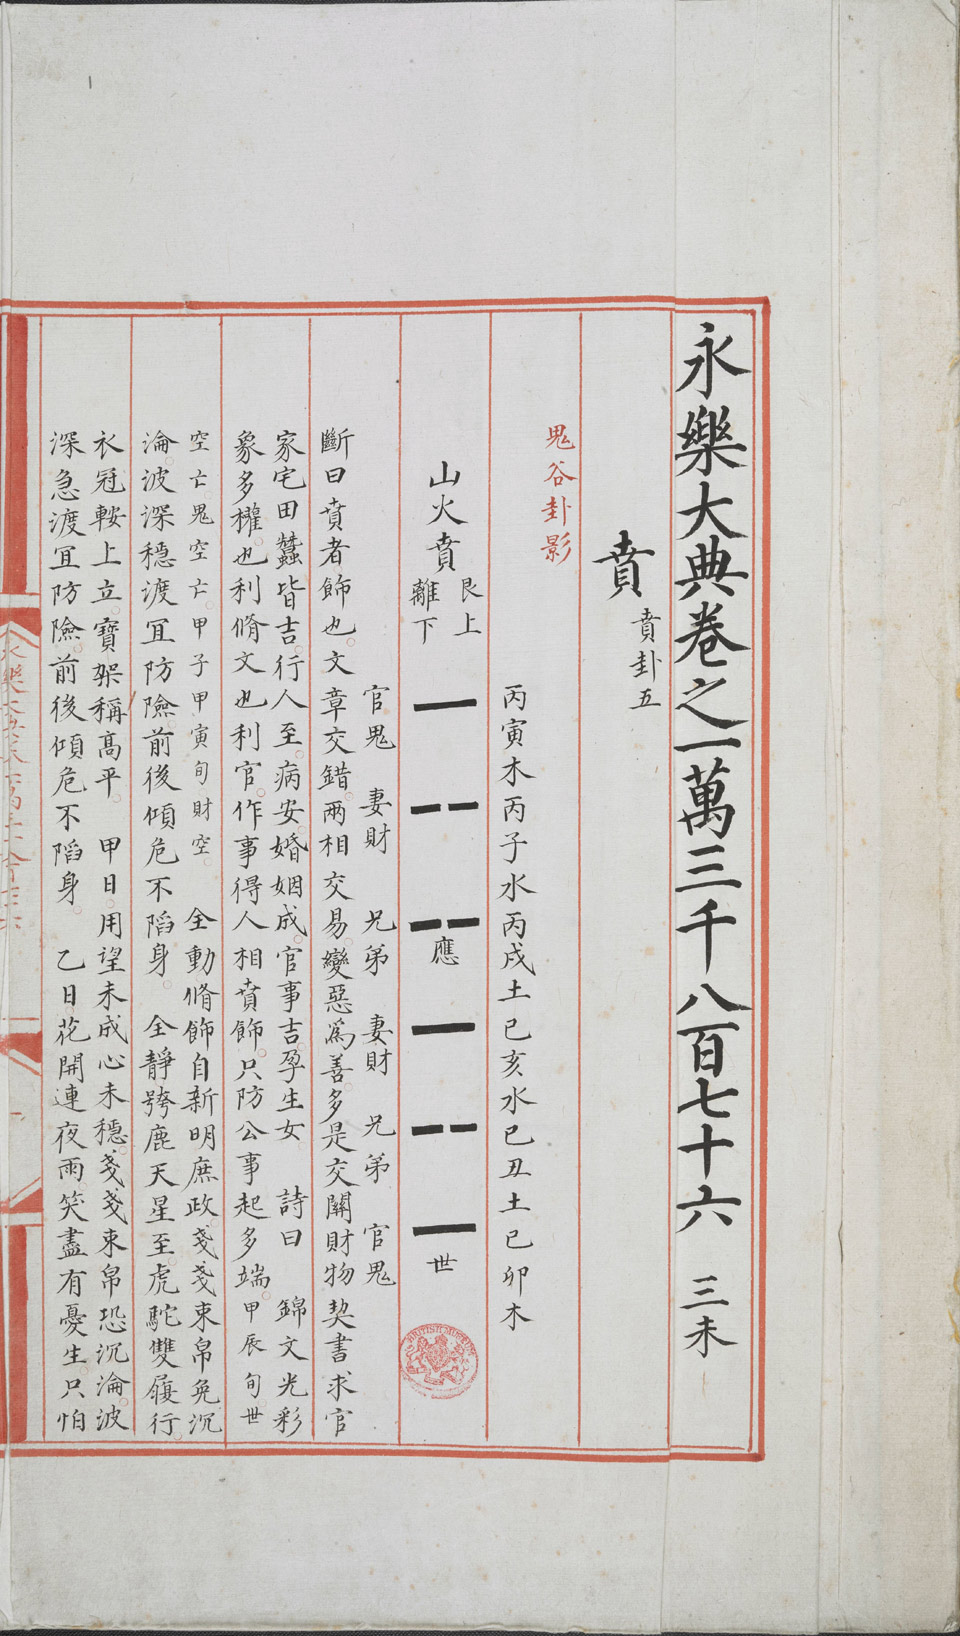 永樂大典卷之一萬三千八百七十六 三未
賁 賁卦五
鬼谷卦影
丙寅木丙子水丙戌土己亥水己丑土己卯木
山火賁 艮上離下 應 世
官鬼 妻財 兄弟 妻財 兄弟 官鬼
斷曰賁者飾也文章交錯兩相交易變惡爲善多是交關財物契書求官
家宅田蠶皆吉行人至病安婚姻成官事吉孕生女 詩曰 錦文光彩
象多權也利脩文也利官作事得人相賁飾只防公事起多端甲辰旬世
空亡鬼空亡甲子甲寅旬財空 全動脩飾自新明庶政戔戔束帛免沉
淪波深穩渡宜防險前後傾危不陷身 全靜跨鹿天星至虎駝雙履行
衣冠鞍上立寶架稱高平 甲日用望未成心未穩戔戔束帛恐沉淪波
深急渡宜防險前後傾危不陷身 乙日花開連夜雨笑盡有憂生只怕
BRITISH MUSEUM